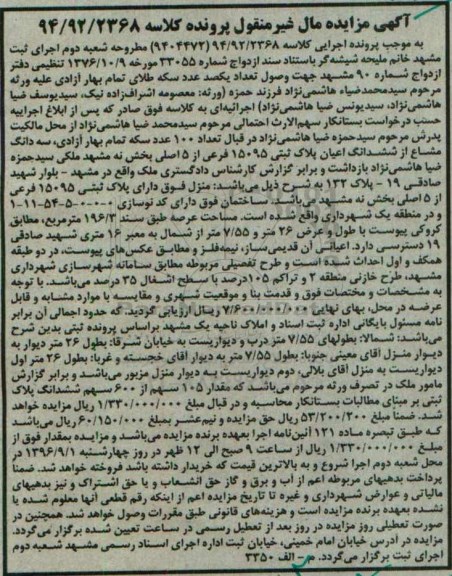 آگهی مزایده مال غیرمنقول پرونده کلاسه ۹۴/۹۲/۲۳۶۸
به موجب پرونده اجرایی کلاسه ۹۴/۹۲/۲۳۶۸ (۹۴۰۴۴۷۲) مطروحه شعبه دوم اجرای ثبت
مشهد خانم ملیحه شیشه‌گر باستناد سند ازدواج شماره ۳۳۰۵۵ مورخه ۱۳۷۶/۱۰/۹ تنظیمی دفتر
ازدواج شماره ۹۰ مشهد جهت وصول تعداد یکصد عدد سکه طلای تمام بهار آزادی علیه ورثه
مرحوم سیدمحمدضیاء هاشمی‌نژاد فرزند حمزه (ورثه: معصومه اشراف‌زاده نیک، سیدیوسف ضیا
هاشمی‌نژاد، سیدیونس ضیا هاشمی‌نژاد) اجرائیه‌ای به کلاسه فوق صادر که پس از ابلاغ اجراییه
حسب درخواست بستانکار سهم‌الارث احتمالی مرحوم سیدمحمد ضیا هاشمی‌نژاد از محل مالکیت
پدرش مرحوم سیدحمزه ضیا هاشمی‌نژاد در قبال تعداد ۱۰۰ عدد سکه تمام بهار آزادی، سه دانگ
مشاع از ششدانگ اعیان پلاک ثبتی ۱۵۰۹۵ فرعی از ۵ اصلی بخش نه مشهد ملکی سیدحمزه
ضیا هاشمی‌نژاد بازداشت و برابر گزارش کارشناس دادگستری ملک واقع در مشهد - بلوار شهید
صادقی ۱۹ - پلاک ۱۳۲ به شرح ذیل می‌باشد: منزل فوق دارای پلاک ثبتی ۱۵۰۹۵ فرعی
از ۵ اصلی بخش نه مشهد می‌باشد. ساختمان فوق دارای کد نوسازی
و در منطقه یک شهرداری واقع شده است. مساحت عرصه طبق سند ۱۹۶/۳ مترمربع، مطابق
کروکی پیوست با طول و عرض ۲۶ متر و ۷/۵۵ متر از شمال به معبر ۱۶ متری شهید صادقی
۱۹ دسترسی دارد. اعیانی آن قدیمی‌ساز، نیمه‌فلز و مطابق عکس‌های پیوست، در دو طبقه
همکف و اول احداث شده است و طرح تفصیلی مربوطه مطابق سامانه شهرسازی شهرداری
مشهد، طرح خازنی منطقه ۲ و تراکم ۱۰۵درصد با سطح اشغال ۳۵ درصد می‌باشد. با توجه
به مشخصات و مختصات فوق و قدمت بنا و موقعیت شهری و مقایسه با موارد مشابه و قابل
عرضه در محل، بهای نهایی ۷/۶۰۰/۰۰۰/۰۰۰ ریال ارزیابی گردید. که حدود اجمالی آن برابر
نامه مسئول بایگانی اداره ثبت اسناد و املاک ناحیه یک مشهد براساس پرونده ثبتی بدین شرح
می‌باشد: شمالا: بطولهای ۷/۵۵ متر درب و دیواریست به خیابان شرقا: بطول ۲۶ متر دیوار به
دیوار منزل آقای معینی جنوبا: بطول ۷/۵۵ متر به دیوار آقای خجسته و غربا: بطول ۲۶ متر اول
دیواریست به منزل آقای بلالی، دوم دیواریست به دیوار منزل مزبور می‌باشد و برابر گزارش
مامور ملک در تصرف ورثه مرحوم می‌باشد که مقدار ۱۰۵ سهم از ۶۰۰ سهم ششدانگ پلاک
ثبتی بر مبنای مطالبات بستانکار محاسبه و در قبال مبلغ ۱/۳۳۰/۰۰۰/۰۰۰ ریال مزایده خواهد
شد. ضمنا مبلغ ۵۳/۲۰۰/۳۰۰ ریال حق مزایده و نیم‌عشر بمبلغ ۶۰/۱۵۰/۰۰۰ ریال می‌باشد
که طبق تبصره ماده ۱۲۱ آئین‌نامه اجرا بعهده برنده مزایده می‌باشد و مزایده بمقدار فوق از
مبلغ ۱/۳۳۰/۰۰۰/۰۰۰ ریال از ساعت ۹ صبح الی ۱۲ ظهر در روز چهارشنبه ۱۳۹۶/۹/۱ در
محل شعبه دوم اجرا شروع و به بالاترین قیمت که خریدار داشته باشد فروخته خواهد شد. ضمنا
پرداخت بدهیهای مربوطه اعم از آب و برق و گاز حق انشعاب و یا حق اشتراک و نیز بدهیهای
مالیاتی و عوارض شهرداری و غیره تا تاریخ مزایده اعم از اینکه رقم قطعی آنها معلوم شده یا
نشده بعهده برنده مزایده است و هزینه‌های قانونی طبق مقررات وصول خواهد شد. همچنین در
صورت تعطیلی روز مزایده در روز بعد از تعطیل رسمی در ساعت تعیین شده برگزار می‌گردد.
مزایده در آدرس خیابان امام خمینی، خیابان ثبت اداره اجرای اسناد رسمی مشهد شعبه دوم
اجرای ثبت برگزار می‌گردد. م - الف ۳۳۵۰